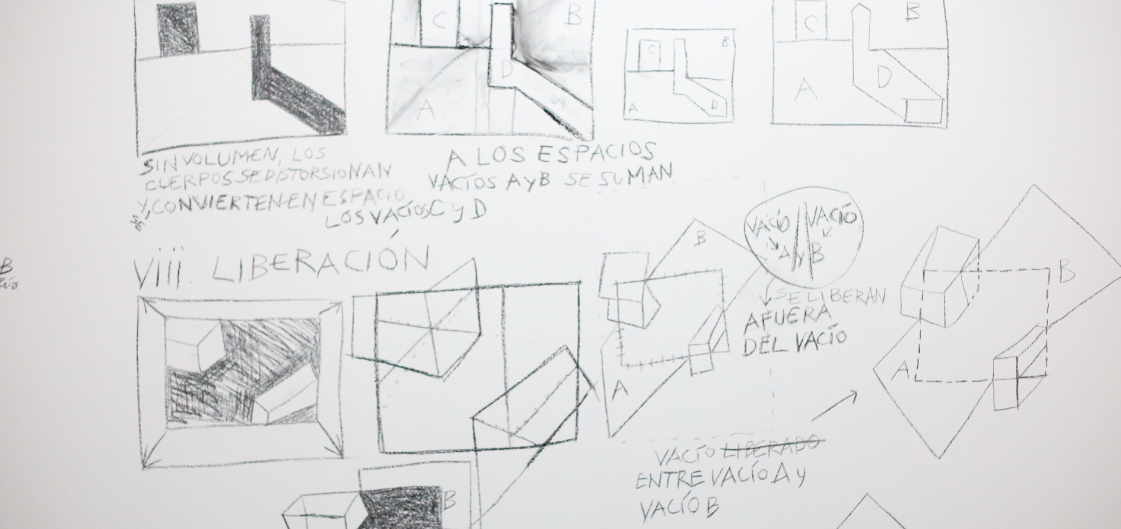 C
B
A
D
C
B
A
D
C
B
A
D
SIN VOLUMEN, LOS
CUERPOS SE DISTORSIONAN
Y SE CONVIERTEN EN ESPACIO
LOS VACÍOS C Y D
A LOS ESPACIOS
VACÍOS A y B SE SUMAN
viii. LIBERACIÓN
B
B
A
VACÍO VACÍO
A y B
SE LIBERAN
AFUERA
DEL VACÍO
B
A
VACÍO LIBERADO
ENTRE VACÍO A y
VACÍO B
B